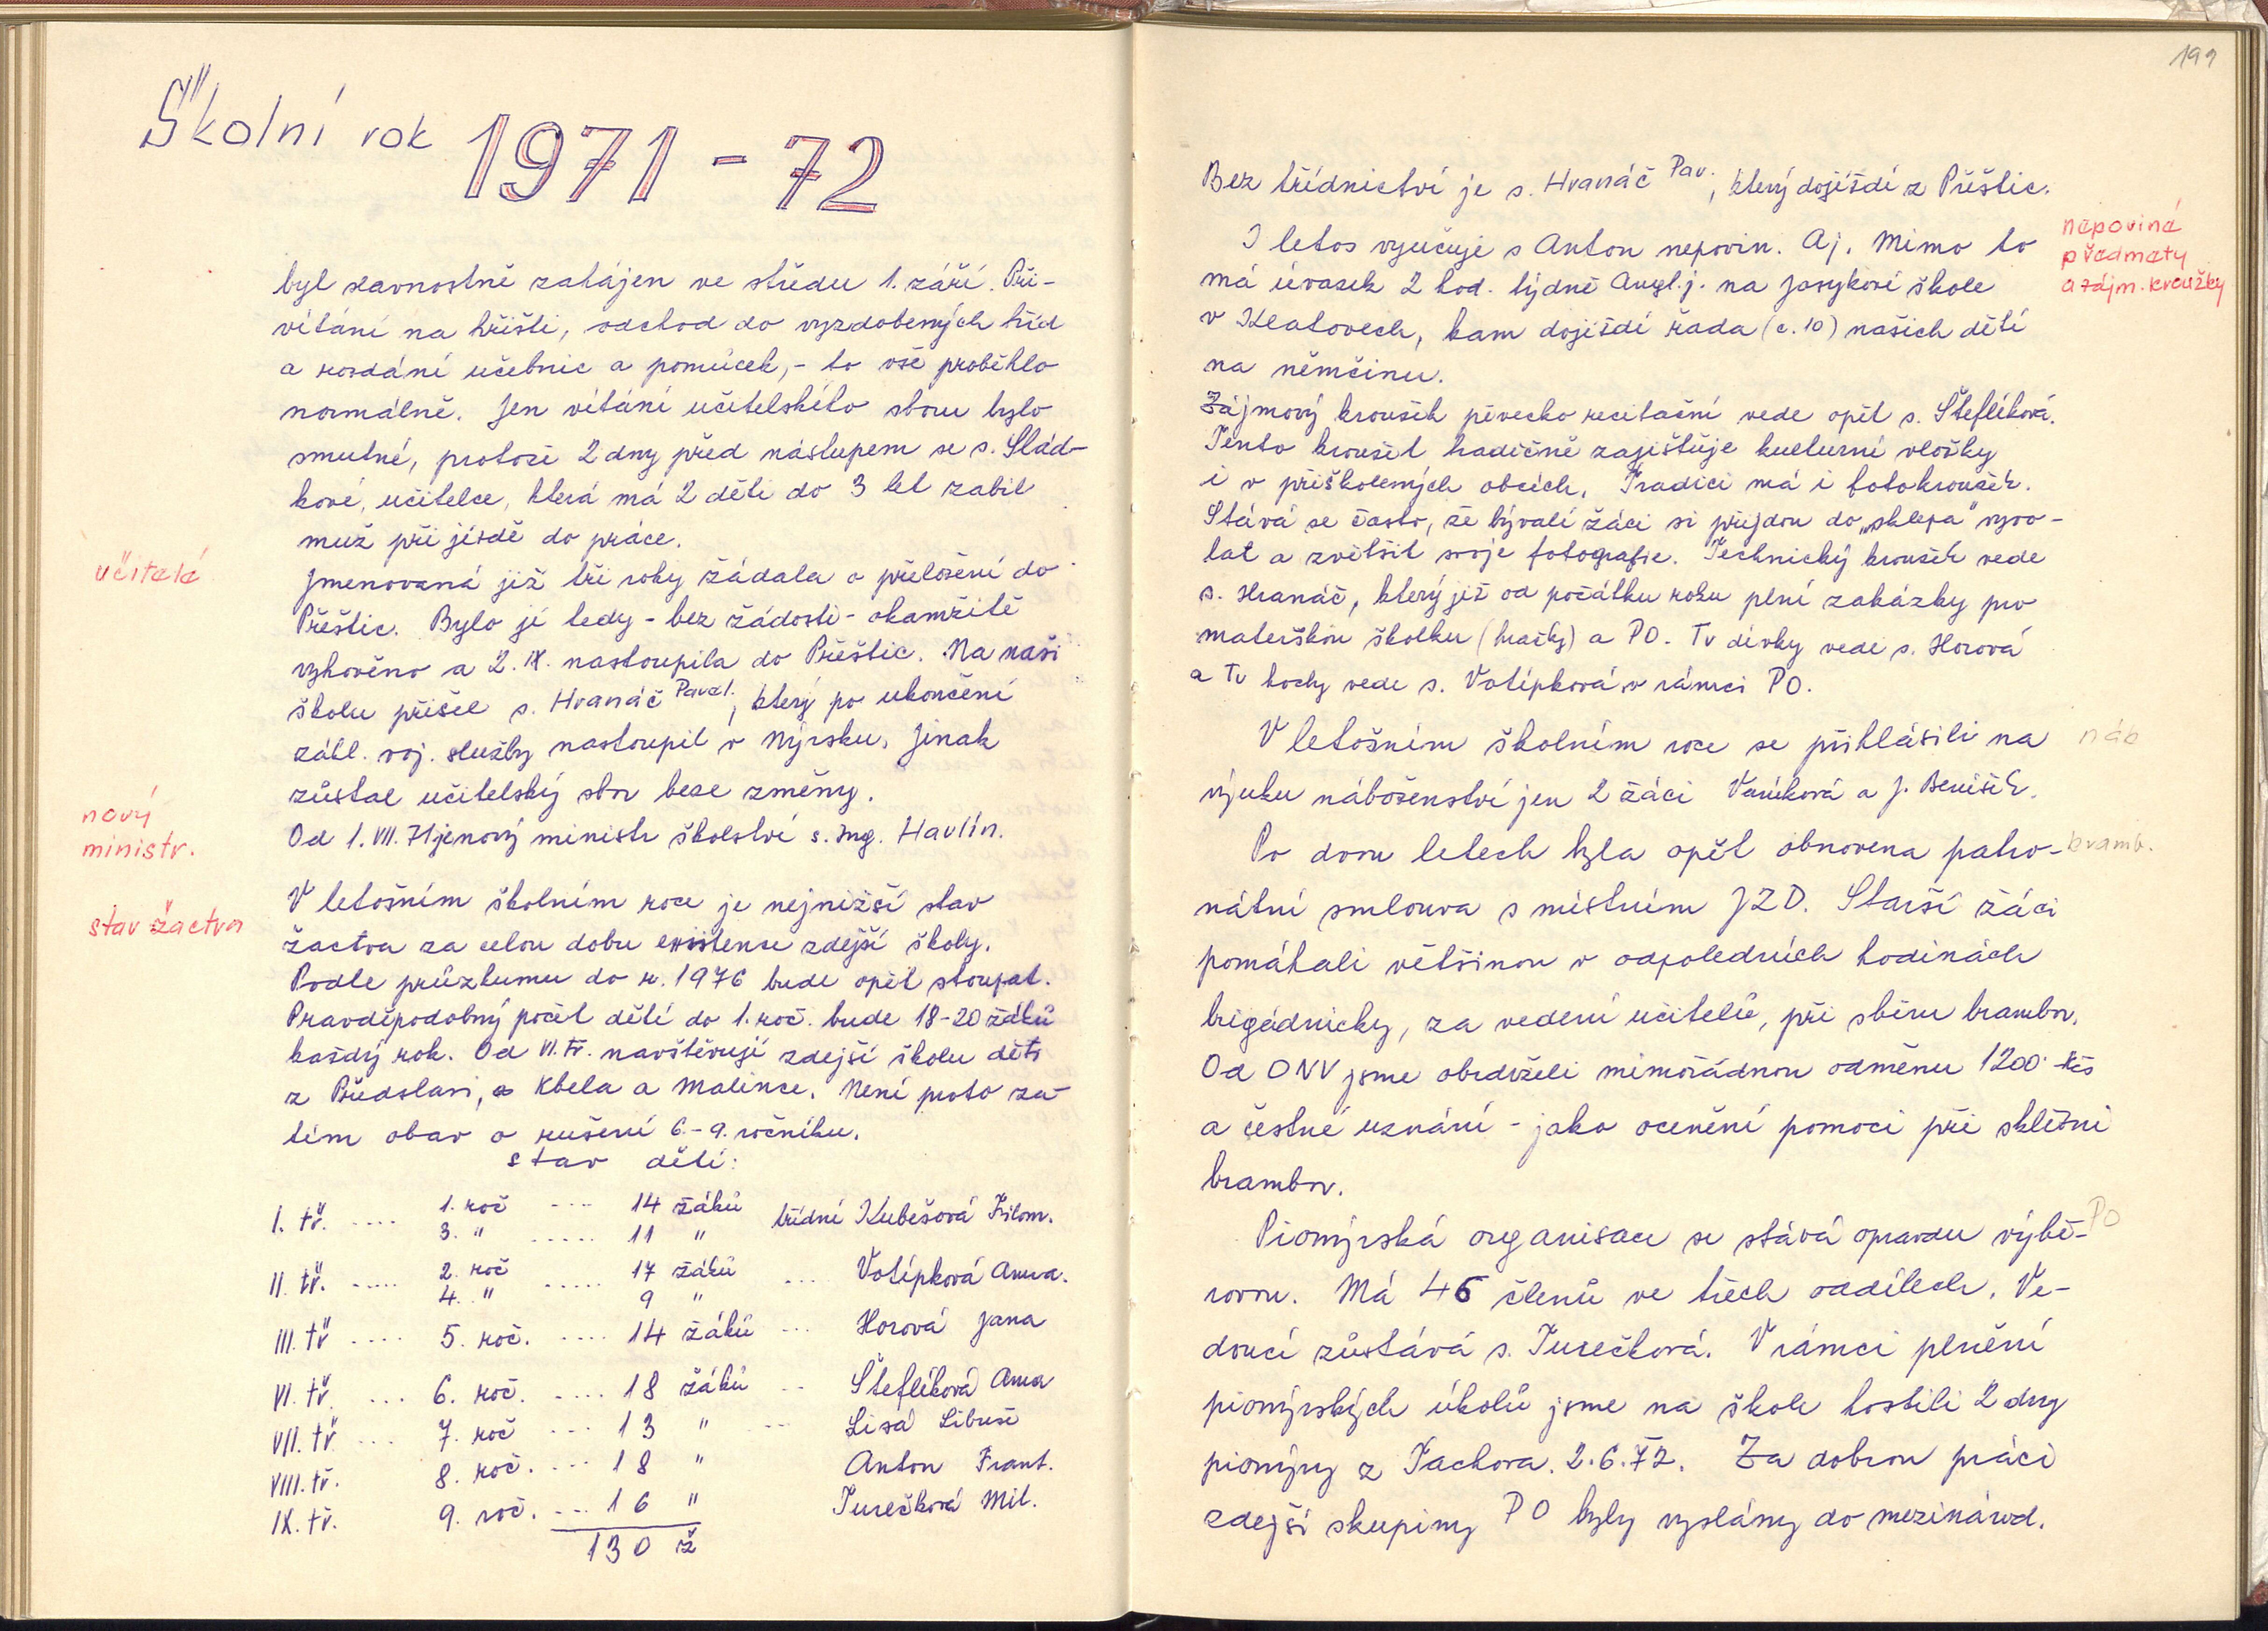 Školní rok 1971 - 72
byl slavnostně zahájen ve středu 1. září. Při-
vítání na hřišti, odchod do vyzdobených tříd
a rozdání učebnic a pomůcek, - to vše proběhlo
normálně. Jen vítání učitelského sboru bylo
smutné, protože 2 dny před nástupem se s. Slád-
kové, učitelce, která má 2 děti do 3 let zabil
muž při jízdě do práce.
učitelé
Jmenovaná již tři roky žádala o přeložení do
Přeštic. Bylo jí tedy - bez žádosti - okamžitě
vyhověno a 2. IX. nastoupila do Přeštic. Na naši
školu přišel s. Hranáč Pavel, který po ukončení
zákl. voj. služby nastoupil v Nýrsku. Jinak
zůstal učitelský sbor beze změny.
nový
ministr.
Od 1. VII. 71 je nový ministr školství s. Ing. Havlín.
stav žactva
V letošním školním roce je nejnižší stav
žactva za celou dobu existence zdejší školy.
Podle průzkumu do r. 1976 bude opět stoupat.
Pravděpodobný počet dětí do 1. roč. bude 18-20 žáků
každý rok. Od VI. tř. navštěvují zdejší školu děti
z Předslavi, Kbela a Malince. Není proto za-
tím obav o rušení 6.- 9. ročníku.
stav dětí:
I. tř. .... 1. roč .... 14 žáků třídní Kubešová Filom.
3. " ..... 11 "
II. tř. ..... 2. roč ..... 17 žáků ... Votípková Anna.
4. " 9 "
III. tř .... 5. roč. .... 14 žáků ... Horová Jana
VI. tř. ... 6. roč. .... 18 žáků .. Šteflíková Anna
VII. tř ... 7. roč ... 13 " ... Lisá Libuše
VIII. tř. 8. roč. ... 18 " Anton Frant.
IX. tř. 9. roč. ... 16 " Turečková Mil.
130 ž
199
Bez třídnictví je s. Hranáč Pav., který dojíždí z Přeštic.
nepoviné
předmety
a zájm. kroužky
I letos vyučuje s Anton nepovin. Aj. Mimo to
má úvazek 2 hod. týdně Angl. j. na jazykové škole
v Klatovech, kam dojíždí řada (c. 10) našich dětí
na němčinu.
Zájmový kroužek pěvecko recitační vede opět s. Šteflíková.
Tento kroužek tradičně zajišťuje kulturní vložky
i v přiškolených obcích. Tradici má i fotokroužek.
Stává se často, že bývalí žáci si přijdou do „sklepa" vyvo-
lat a zvětšit svoje fotografie. Technický kroužek vede
s. Hranáč, který již od počátku roku plní zakázky pro
mateřskou školku (hračky) a PO. Tv dívky vede s. Horová
a Tv hochy vede s. Votípková v rámci PO.
V letošním školním roce se přihlásili na
náb
výuku náboženství jen 2 žáci Vaníková a J. Benišek.
Po dvou letech byla opět obnovena patro-
bramb.
nátní smlouva s místním JZD. Starší žáci
pomáhali většinou v odpoledních hodinách
brigádnicky, za vedení učitelů, při sběru brambor.
Od ONV jsme obdrželi mimořádnou odměnu 1200 Kčs
a čestné uznání - jako ocenění pomoci při sklizni
brambor.
PO
Pionýrská organisace se stává opravdu výbě-
rovou. Má 46 členů ve třech oddílech. Ve-
doucí zůstává s. Turečková. V rámci plnění
pionýrských úkolů jsme na škole hostili 2 dny
pionýry z Tachova. 2.6.72. Za dobrou práci
zdejší skupiny PO byly vyslány do mezinárod.